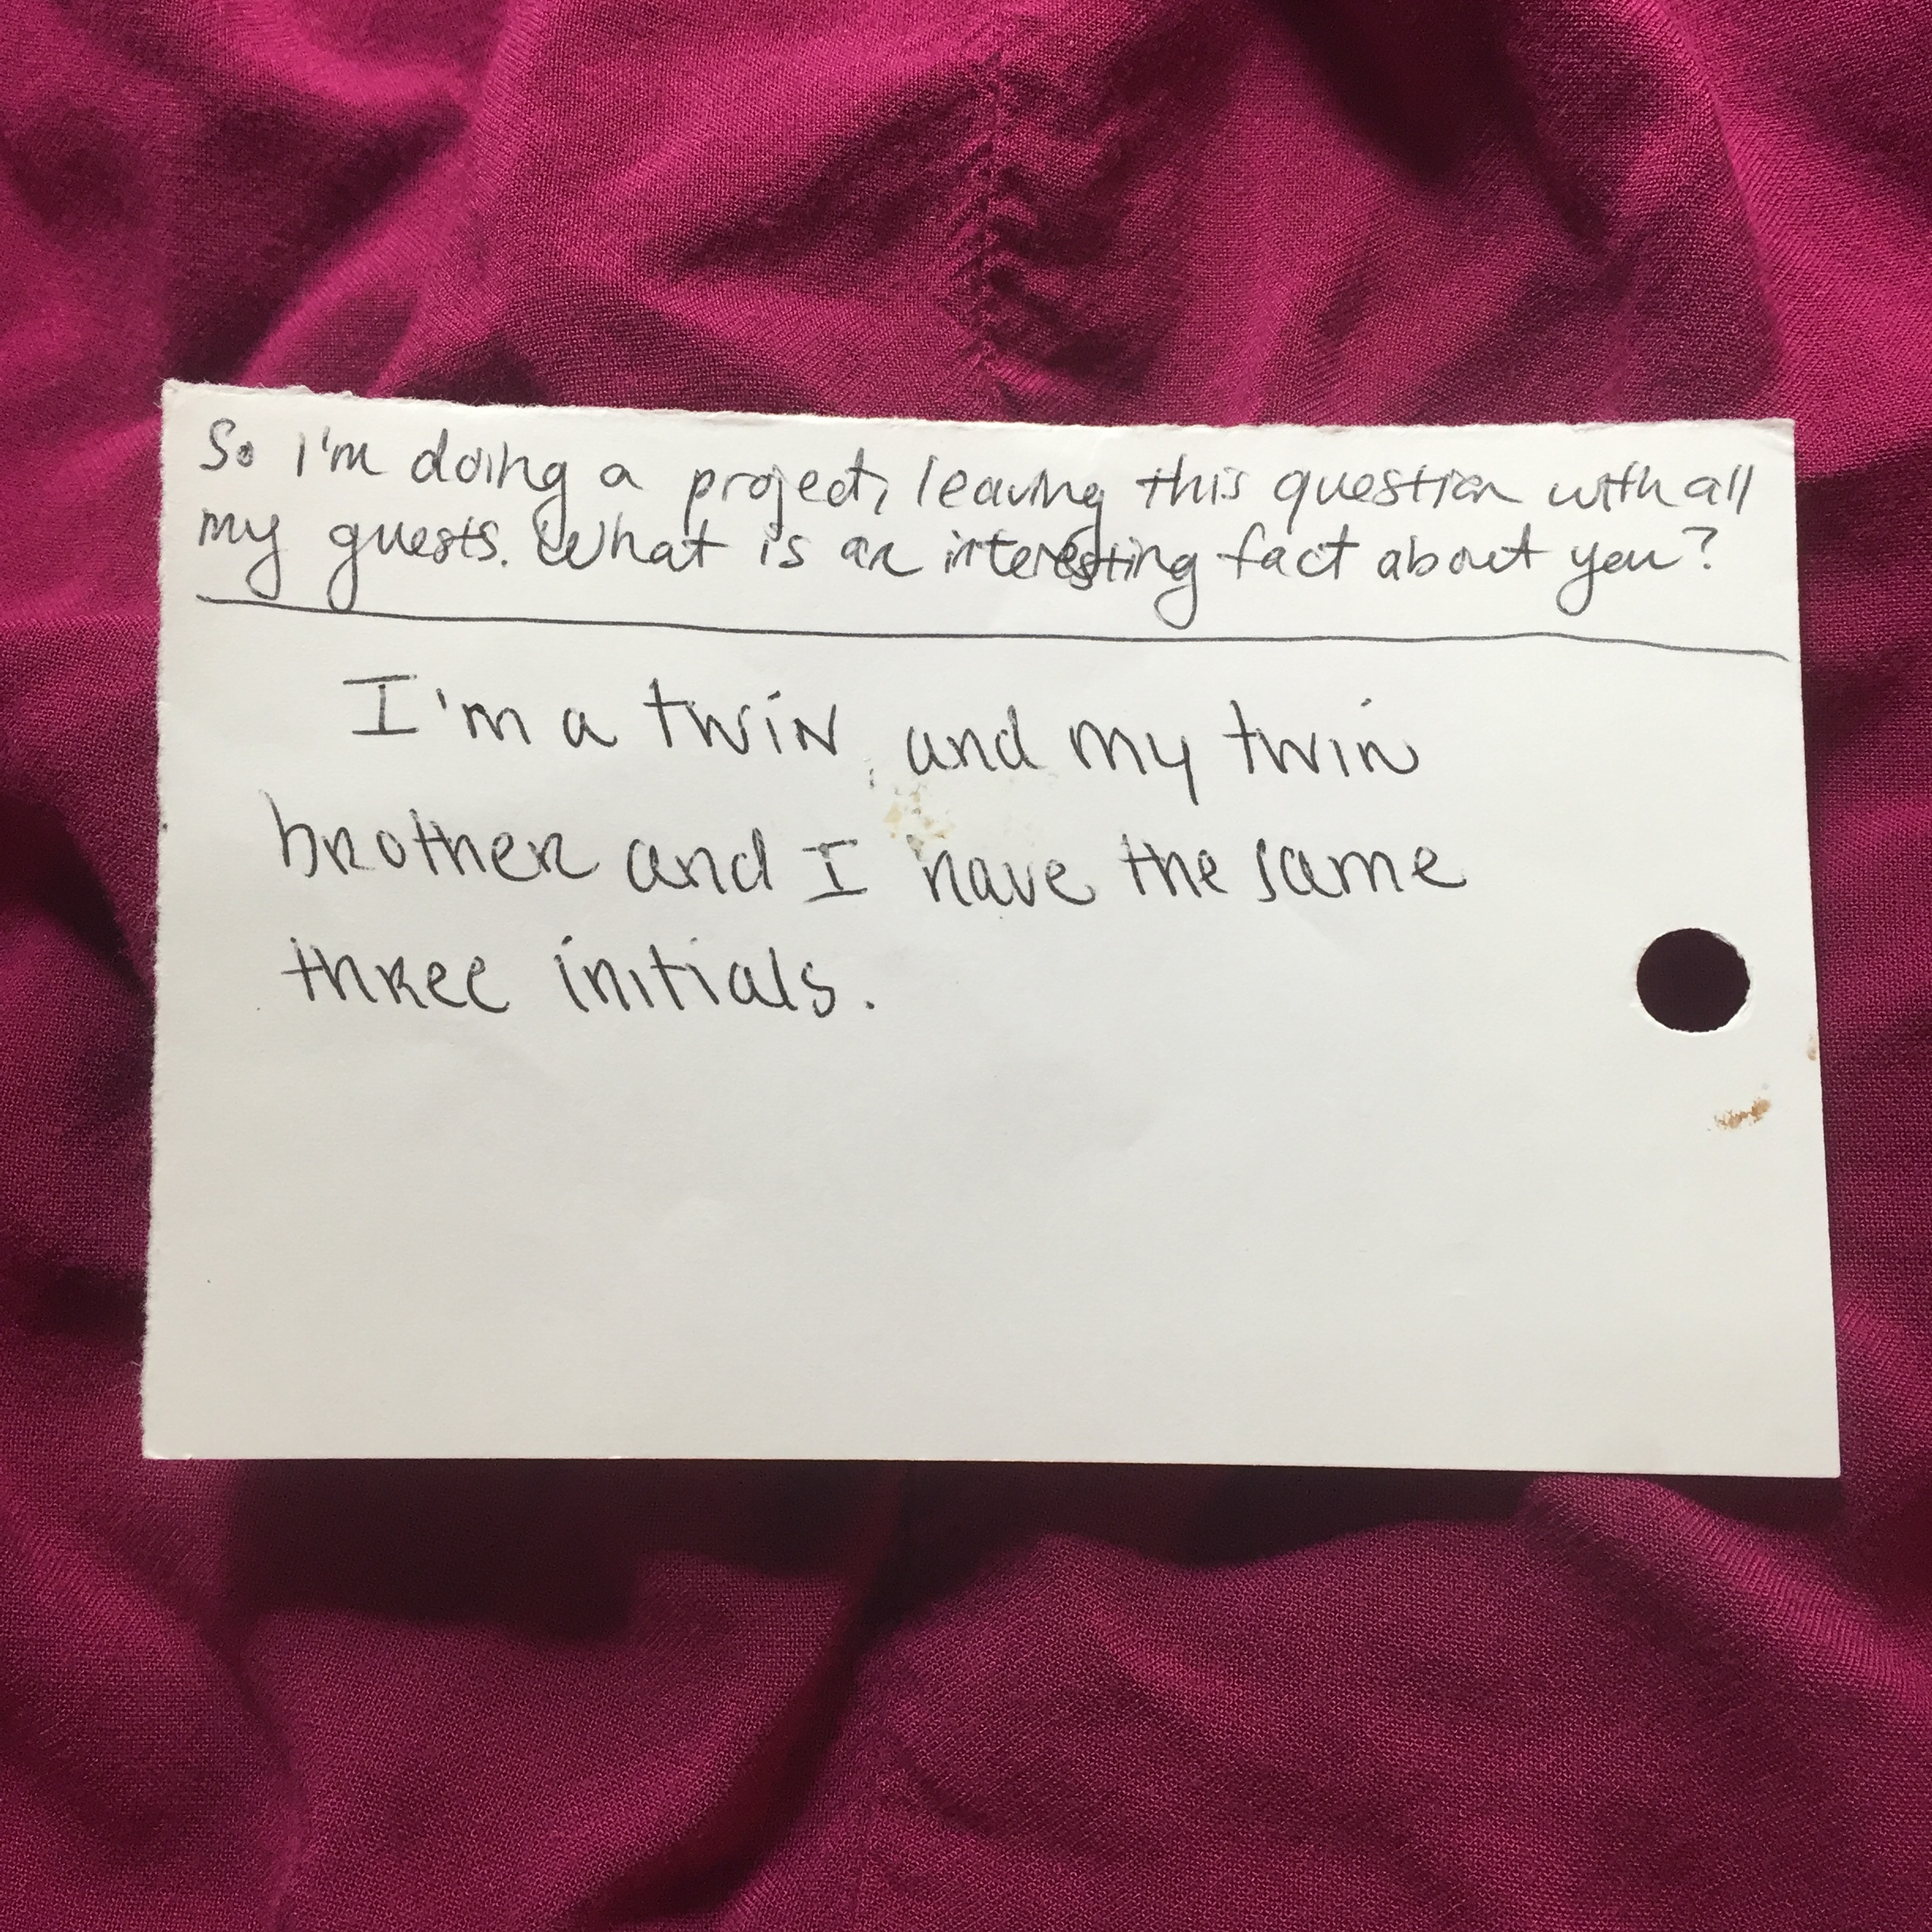 So I'm doing a project, leaving this question with all
my guests. What is an interesting fact about you?
I'm a twin, and my twin
brother and I have the same
three initials.